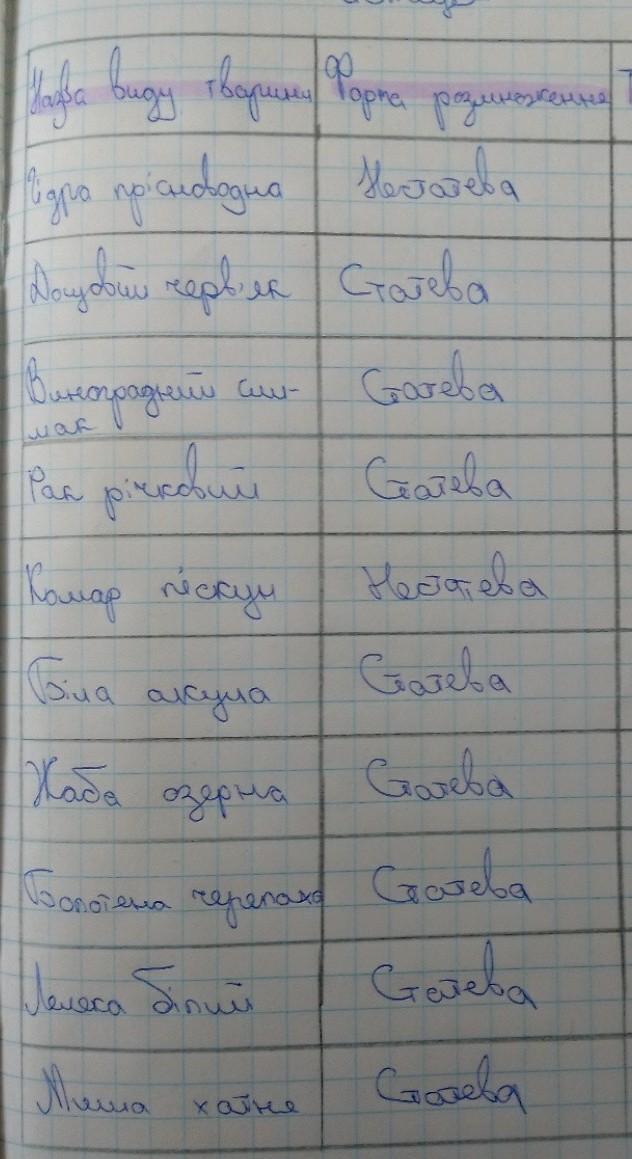 Назва виду тварини Форма розмноження
Гідра прісноводна Нестатева
Дощовий черв'як Статева
Виноградний сли-
мак Статева
Рак річковий Статева
Комар піскун Нестатева
Біла акула Статева
Жаба озерна Статева
Болотена черепаха Статева
Лелека білий Статева
Миша хатня Статева